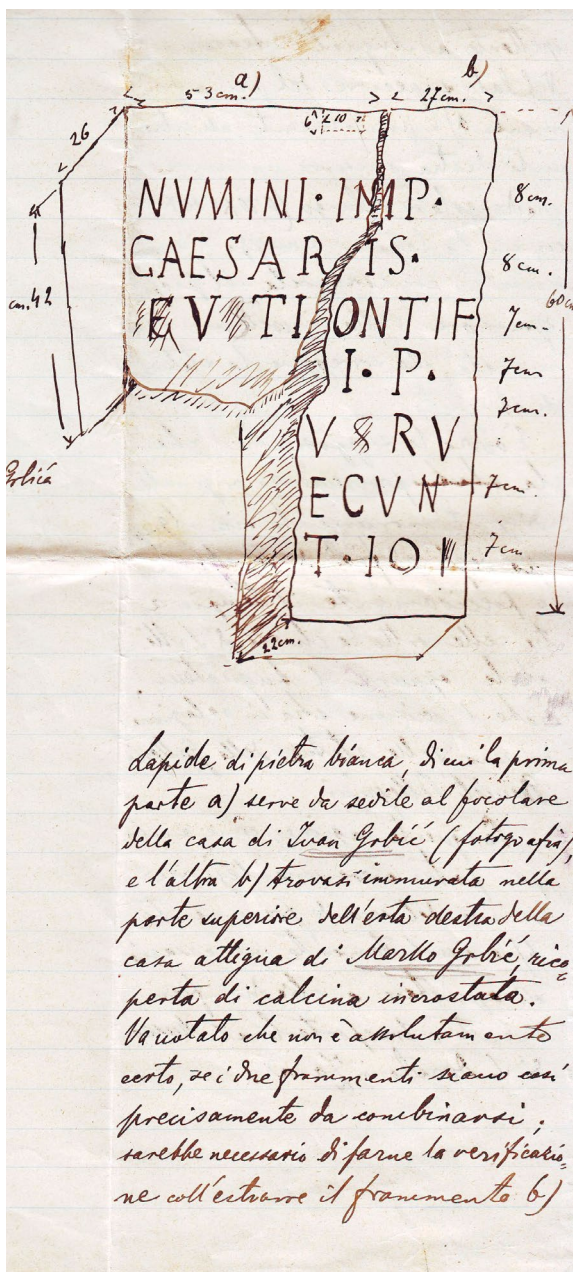 a)
b)
53 cm.
27 cm.
6
10
26
NVMINI · IMP ·
8 cm.
CAESAR IS ·
8 cm.
cm. 42
60 cm
EV TI ONTIF
7 cm
I · P ·
7 cm
7 cm.
V 8 R V
ECVN
7 cm.
T · I O I
7 cm
22 cm.
Lapide di pietra bianca, di cui la prima
parte a) serve da sedile al focolare
della casa di Ivan Grbić (fotografia)
e l'altra b) trovasi immurata nella
parte superiore dell'erta destra della
casa attigua di Marko Grbić, rico=
perta di calcina incrostata.
Va notato che non è assolutamente
certo, se i due frammenti siano così
precisamente da combinarsi;
sarebbe necessario di farne la verificazio=
ne coll'estrarre il frammento b)